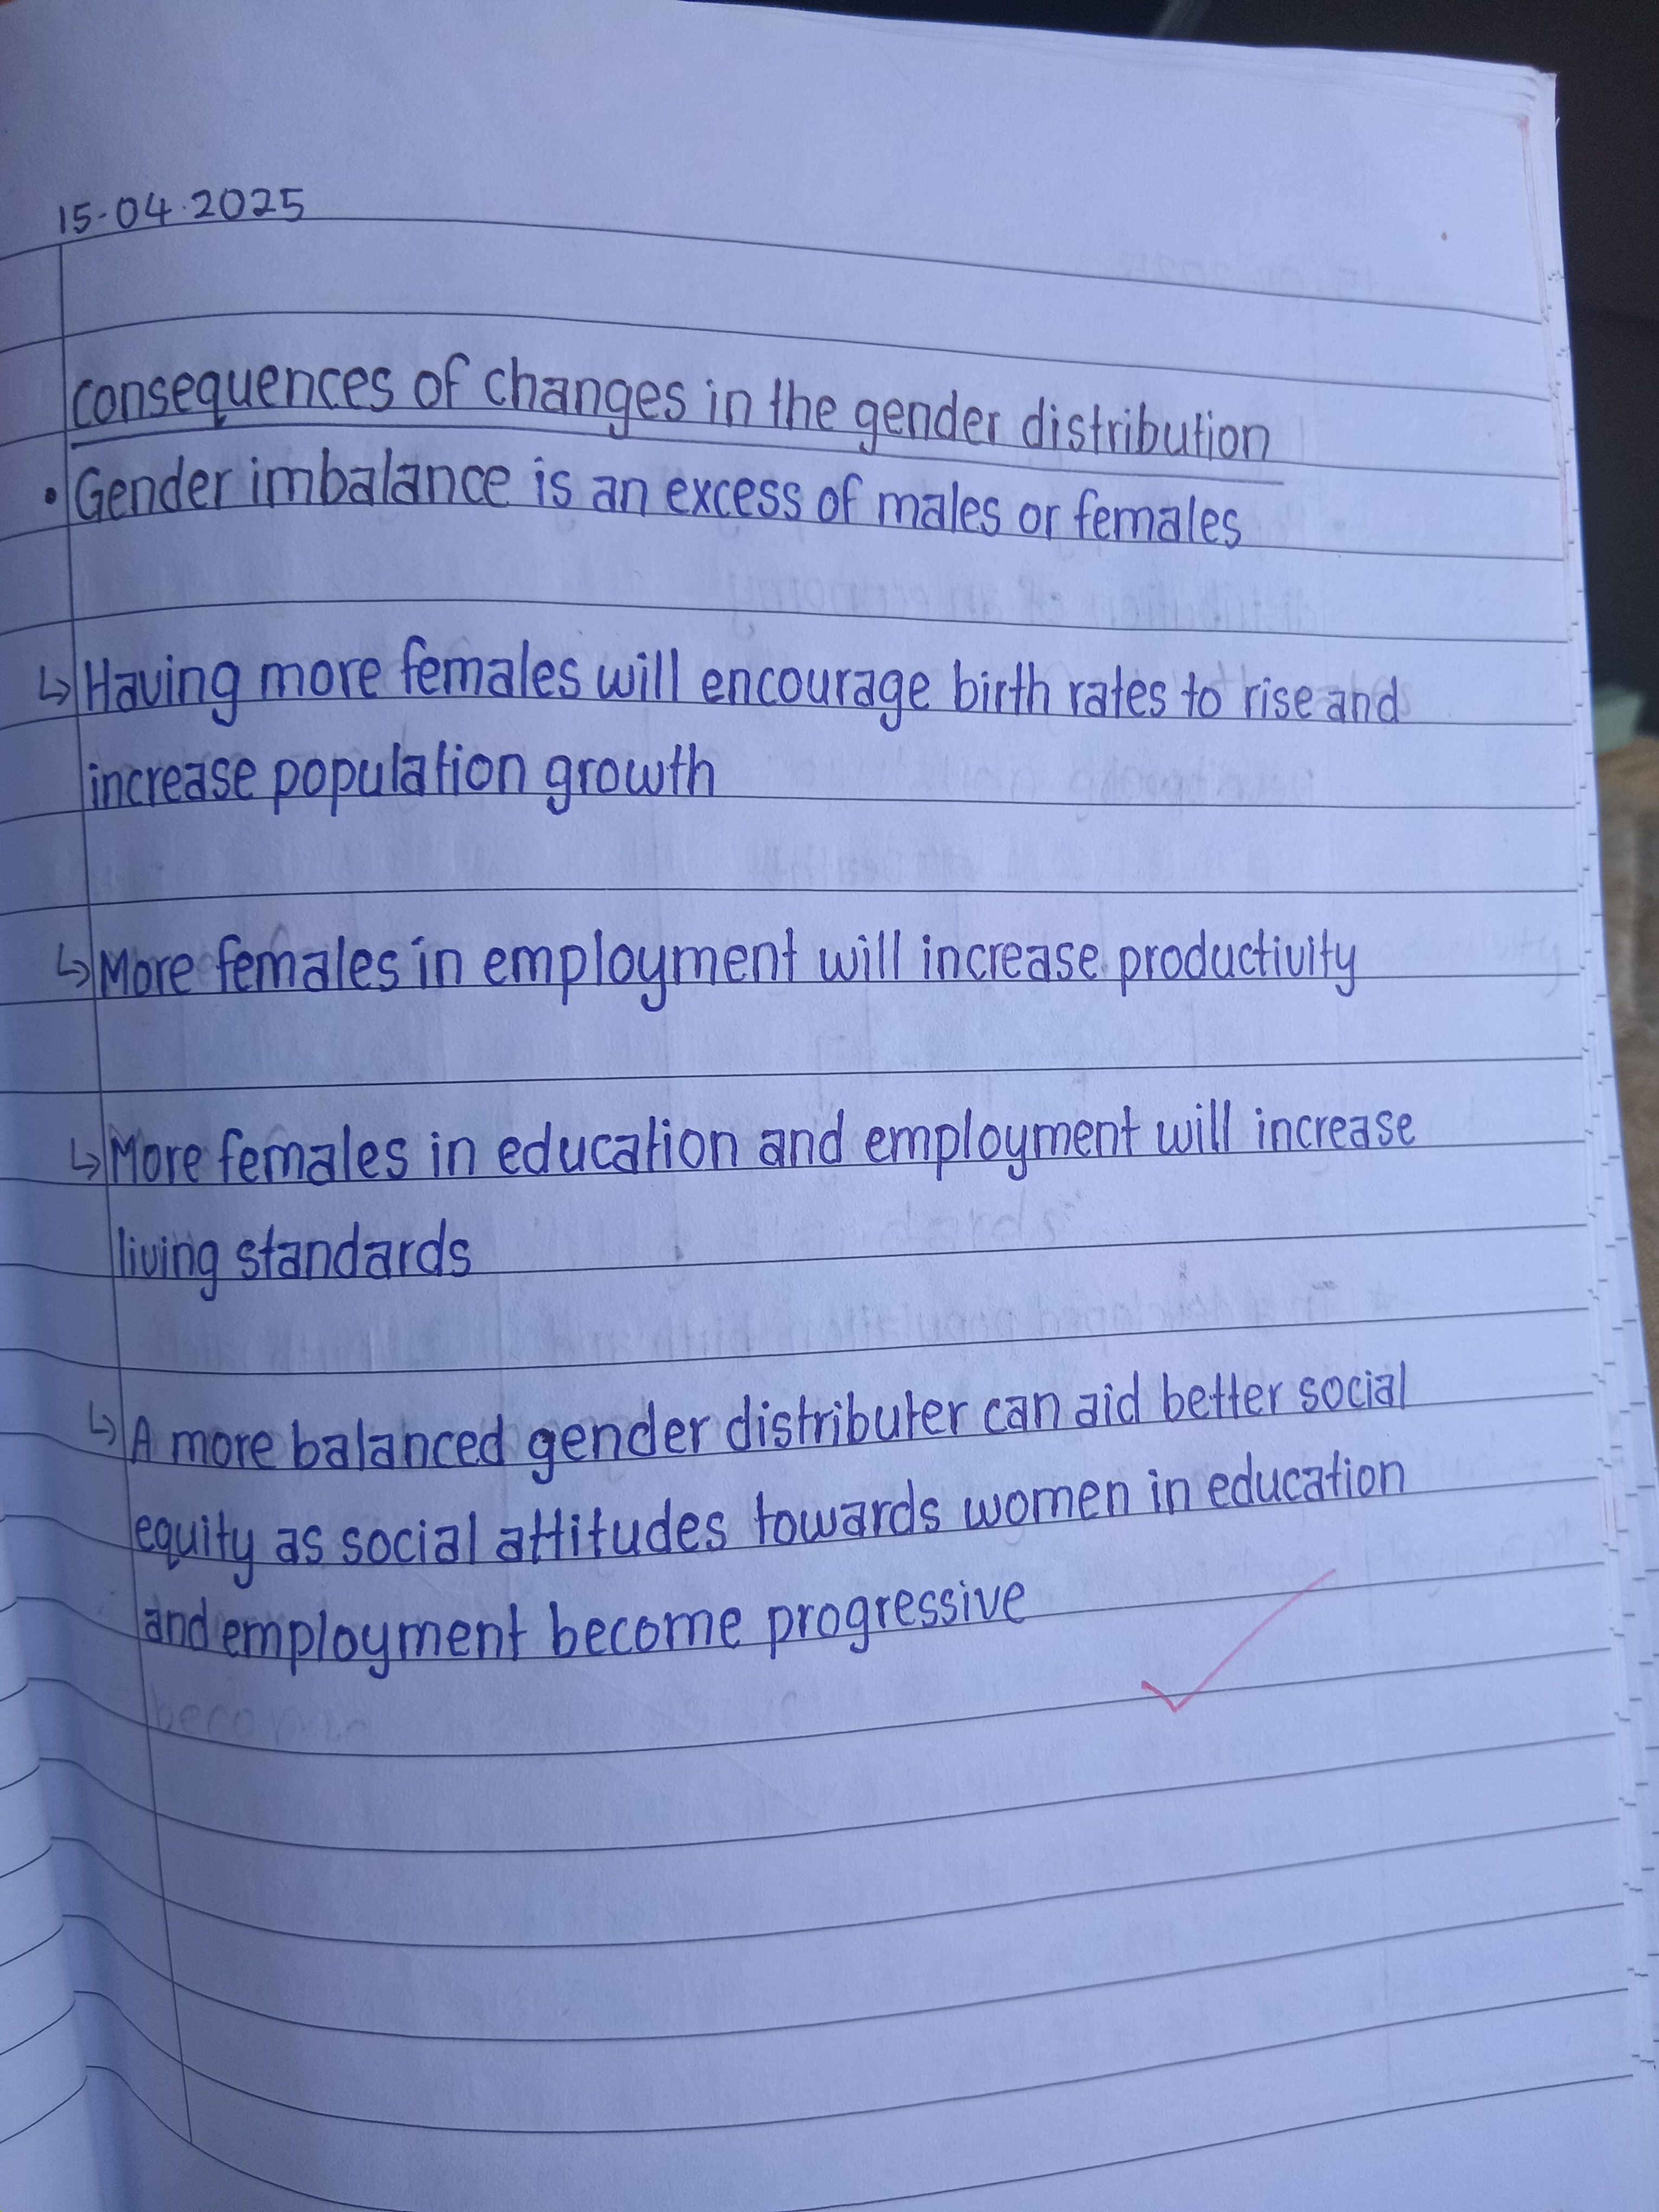 15-04.2025
consequences of changes in the gender distribution
• Gender imbalance is an excess of males or females
↳ Having more females will encourage birth rates to rise and
increase population growth
↳ More females in employment will increase productivity
↳ More females in education and employment will increase
living standards
↳ A more balanced gender distributer can aid better social
equity as social attitudes towards women in education
and employment become progressive